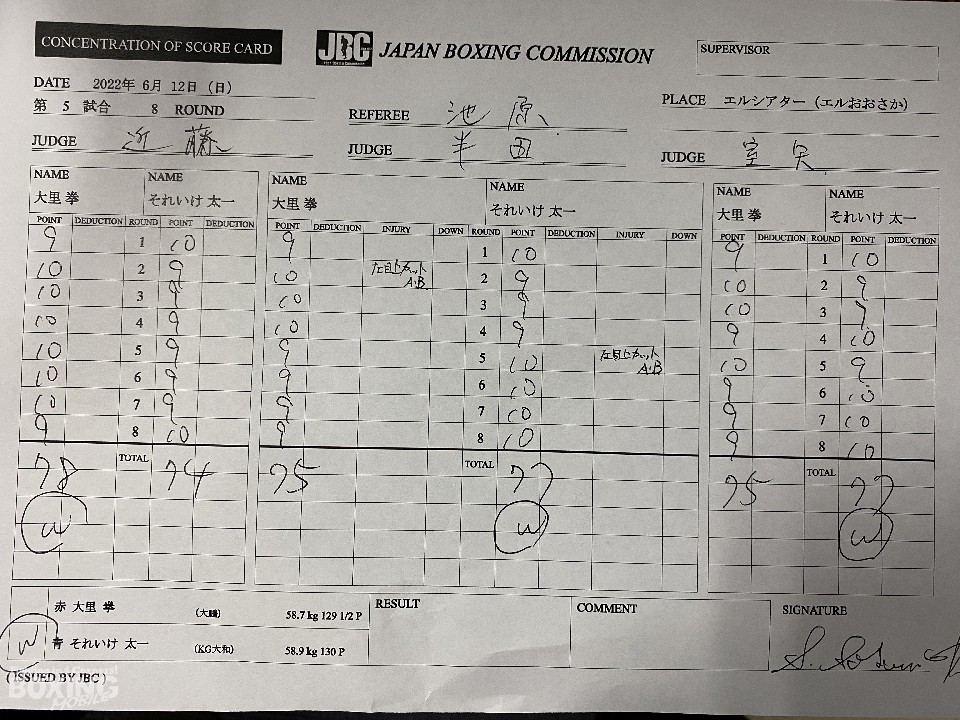 CONCENTRATION OF SCORE CARD
JBC JAPAN BOXING COMMISSION
SUPERVISOR
DATE 2022年 6月 12日 (日)
第 5 試合 8 ROUND
REFEREE 池原
PLACE エルシアター (エルおおさか)
JUDGE 近藤
JUDGE 半田
JUDGE 宮矢
NAME NAME NAME NAME NAME NAME
大里 拳 それいけ 太一 大里 拳 それいけ 太一 大里 拳 それいけ 太一
POINT DEDUCTION ROUND POINT DEDUCTION POINT DEDUCTION INJURY DOWN ROUND POINT DEDUCTION INJURY DOWN POINT DEDUCTION ROUND POINT DEDUCTION
9 1 10 9 1 10 9 1 10
10 2 9 10 左目上カット A・B 2 9 10 2 9
10 3 9 10 3 9 10 3 9
10 4 9 10 4 9 9 4 10
10 5 9 9 5 10 左目上カット A・B 10 5 9
10 6 9 9 6 10 9 6 10
10 7 9 9 7 10 9 7 10
9 8 10 9 8 10 9 8 10
78 TOTAL 74 75 TOTAL 77 75 TOTAL 77
W W W
赤 大里 拳 (大鵬) 58.7 kg 129 1/2 P
RESULT
COMMENT
SIGNATURE
W 青 それいけ 太一 (KG大和) 58.9 kg 130 P
( ISSUED BY JBC )
BOXING
MOBILE